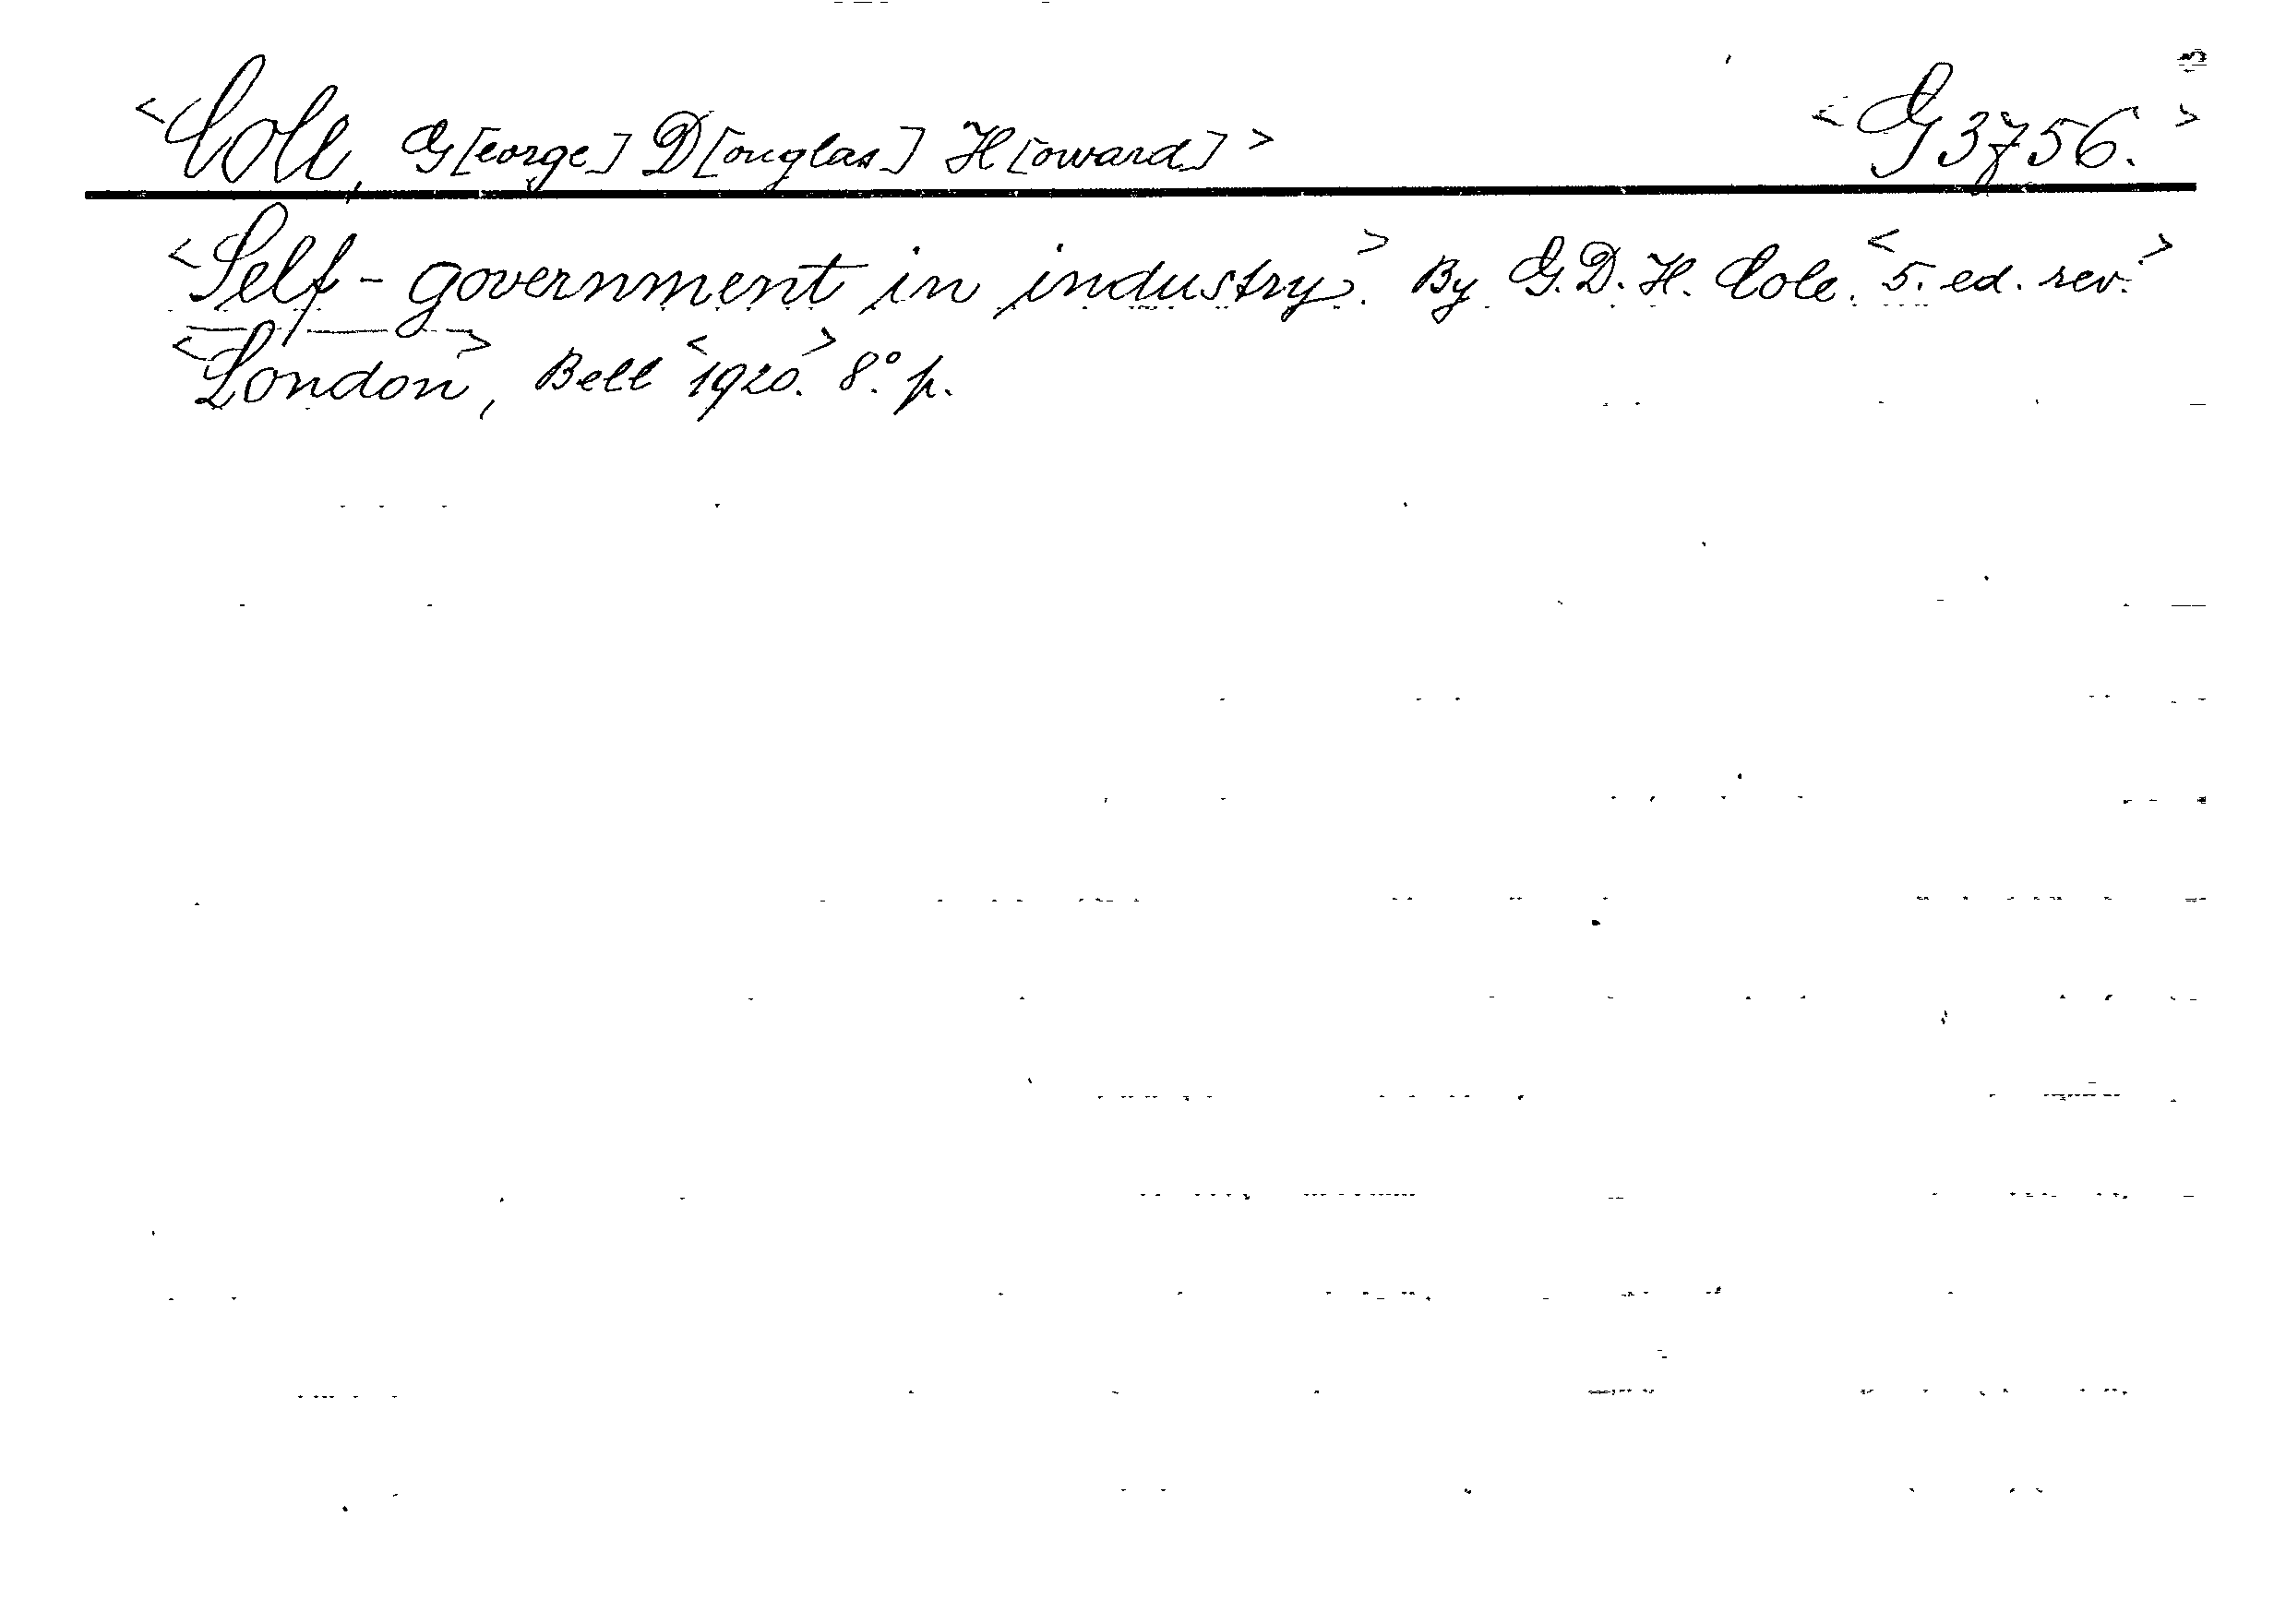 <Cole, G[eorge] D[ouglas] H[oward]> <G 3756.>
<Self-government in industry>. By G. D. H. Cole. <5. ed. rev.>
<London>, Bell <1920.> 8.° p.